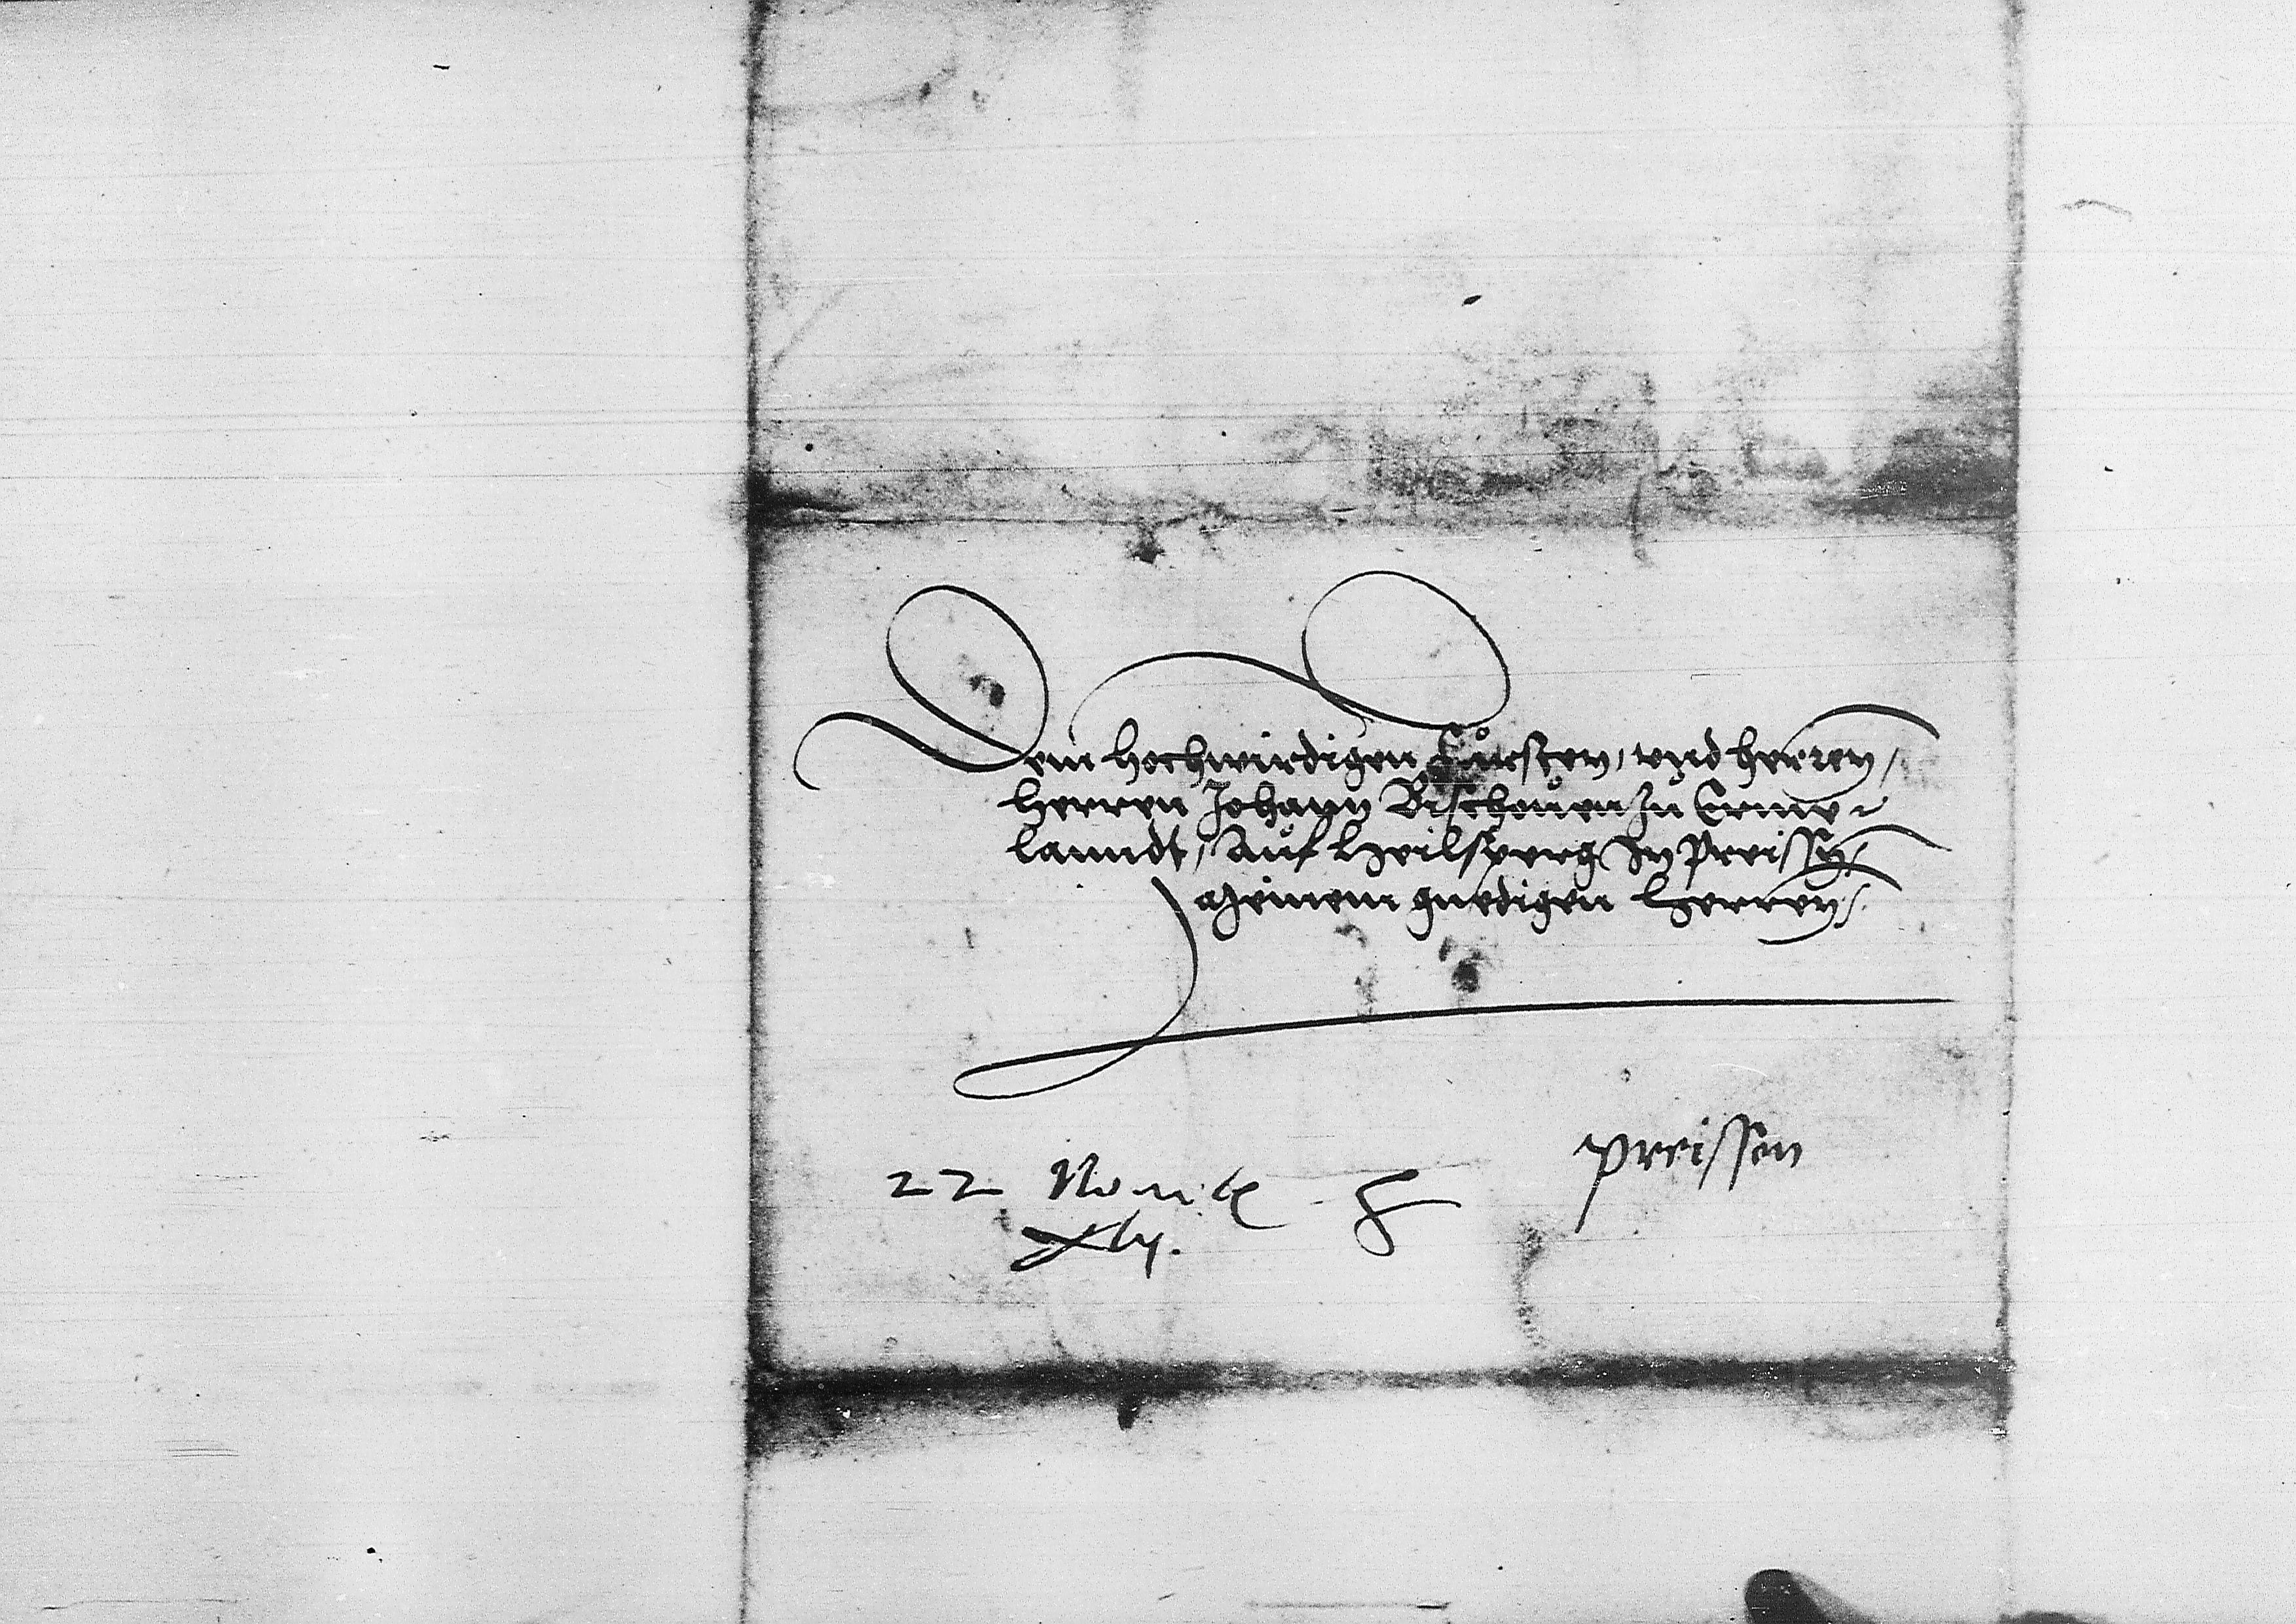 Dem hochwirdigen Fürsten, vnd herren,
herren Johann Bischouen zu Erme-
lanndt, Auf Heilsperg In Preissn,
Meinem gnedigen herren,
preissen
22